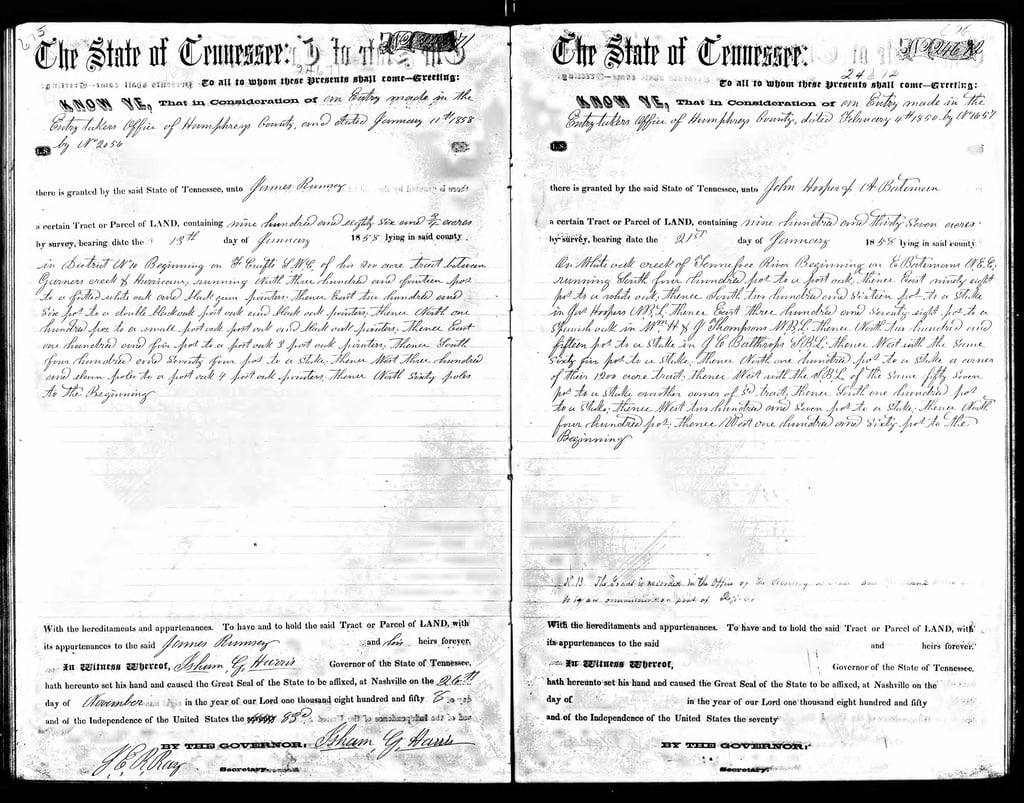 675
The State of Tennessee:
To all to whom these Presents shall come—Greeting:
KNOW YE, That in Consideration of an Entry made in the
Entry takers Office of Humphreys County, and dated January 11th 1858
by No 2056
L.S.
there is granted by the said State of Tennessee, unto James Rumsey
a certain Tract or Parcel of LAND, containing nine hundred and eighty six and 1/2 acres
by survey, bearing date the 13th day of January 1858 lying in said county
in District No 10 Beginning on S.W.C. of his 200 acre tract between
creek & Hurricane, running North three hundred and fourteen pos
to a white oak and black gum pointers; thence East two hundred and
six pos to a double black oak post oak and black oak pointers, thence North one
hundred pos to a small post oak post oak and black oak pointers, Thence East
one hundred and five pos to a post oak 3 post oak pointers, Thence South
four hundred and Seventy four pos to a Stake, Thence West three hundred
and eleven poles to a post oak 4 post oak pointers, thence North Sixty poles
to the Beginning
With the hereditaments and appurtenances. To have and to hold the said Tract or Parcel of LAND, with
its appurtenances to the said James Rumsey and his heirs forever,
In Witness Whereof, Isham G. Harris Governor of the State of Tennessee,
hath hereunto set his hand and caused the Great Seal of the State to be affixed, at Nashville on the 26th
day of November in the year of our Lord one thousand eight hundred and fifty 8
and of the Independence of the United States the 83d
BY THE GOVERNOR: Isham G. Harris
J. E. R. Ray
Secretary.
676
The State of Tennessee:
24672
To all to whom these Presents shall come—Greeting:
KNOW YE, That in Consideration of an Entry made in the
Entry takers Office of Humphreys County, dated February 4th 1850 by No 1657
L.S.
there is granted by the said State of Tennessee, unto John Hooper & A Bateman
a certain Tract or Parcel of LAND, containing nine hundred and thirty Seven acres
by survey, bearing date the 21st day of January 1858 lying in said county
On White oak creek of Tennessee River Beginning on E Batemans N.E.C.
running South four hundred pos to a post oak, thence East ninety eight
pos to a white oak, Thence South two hundred and Sixteen pos to a Stake
in Jas Hoopers N.B.L. Thence East three hundred and Seventy eight pos to a
Spanish oak in Wm H & J Thompsons W.B.L. thence North two hundred and
fifteen pos to a Stake in J. C. S.B.L. thence West with the Same
Sixty five pos to a Stake, Thence North one hundred pos to a Stake a corner
of their 1200 acre tract, thence West with the S.B.L. of the same fifty Seven
pos to a Stake another corner of sd tract, thence South one hundred pos
to a Stake, thence West two hundred and Seven pos to a Stake, thence North
four hundred pos, thence West one hundred and Sixty pos to the
Beginning
The Grant is recorded in the Office of the Secretary of State and
With the hereditaments and appurtenances. To have and to hold the said Tract or Parcel of LAND, with
its appurtenances to the said and heirs forever.
In Witness Whereof, Governor of the State of Tennessee.
hath hereunto set his hand and caused the Great Seal of the State to be affixed, at Nashville on the
day of in the year of our Lord one thousand eight hundred and fifty
and of the Independence of the United States the seventy
BY THE GOVERNOR:
Secretary.